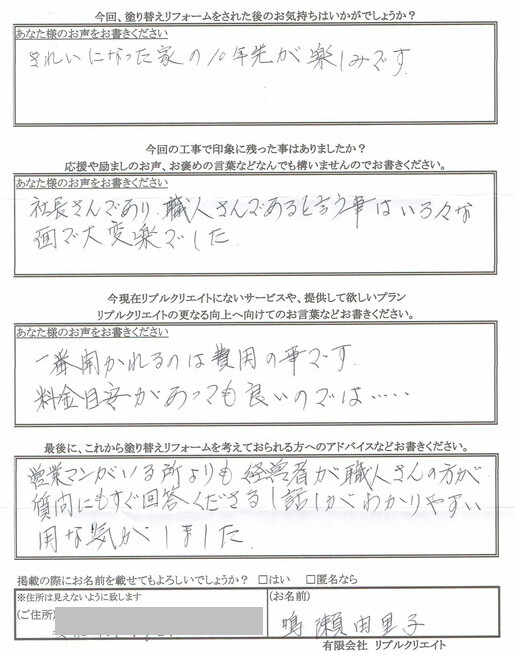 今回、塗り替えリフォームをされた後のお気持ちはいかがでしょうか？
あなた様のお声をお書きください
きれいになった家の10年先が楽しみです
今回の工事で印象に残った事はありましたか？
応援や励ましのお声、お褒めの言葉などなんでも構いませんのでお書きください。
あなた様のお声をお書きください
社長さんであり、職人さんであると言う事はいろ々な
面で大変楽でした
今現在リプルクリエイトにないサービスや、提供して欲しいプラン
リプルクリエイトの更なる向上へ向けてのお言葉などお書きください。
あなた様のお声をお書きください
一番聞かれるのは費用の事です
料金目安があっても良いのでは……
最後に、これから塗り替えリフォームを考えておられる方へのアドバイスなどお書きください。
営業マンがいる所よりも経営者が職人さんの方が
質問にもすぐ回答くださるし話しがわかりやすい
用な気がしました
掲載の際にお名前を載せてもよろしいでしょうか？ □はい □匿名なら
※住所は見えないように致します
(お名前)
(ご住所)
鳴瀬由里子
有限会社 リプルクリエイト